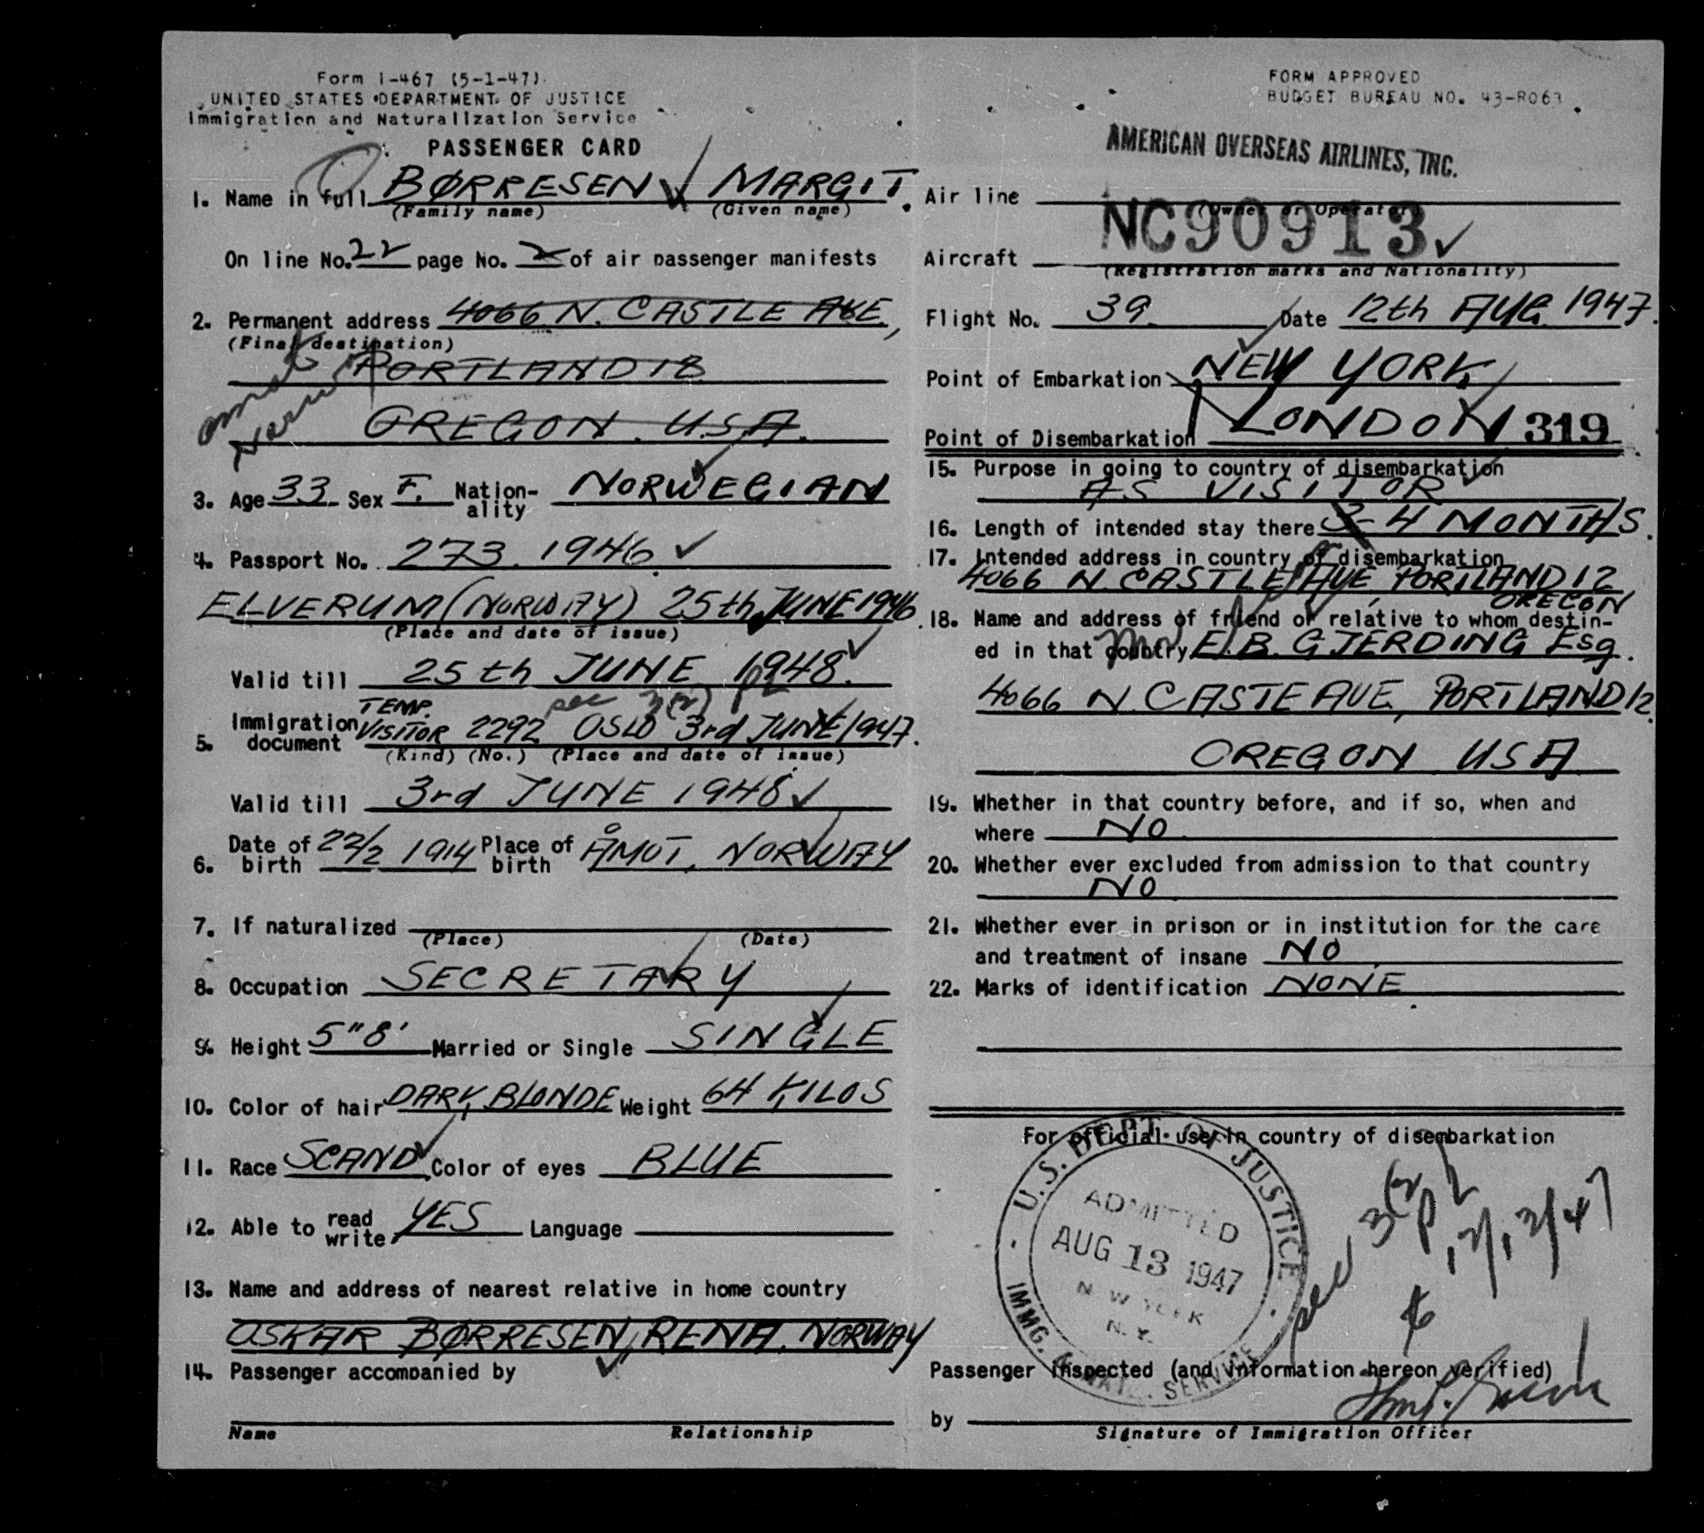 Form I-467 (5-1-47)
UNITED STATES DEPARTMENT OF JUSTICE
Immigration and Naturalization Service
PASSENGER CARD
1. Name in full BØRRESEN MARGIT.
(Family name) (Given name)
On line No. 22 page No. 2 of air passenger manifests
2. Permanent address 4066 N. CASTLE AVE,
(Final destination)
PORTLAND 12
OREGON. USA.
3. Age 33 Sex F. Nation-ality NORWEGIAN
4. Passport No. 273. 1946.
ELVERUM (NORWAY) 25th JUNE 1946
(Place and date of issue)
Valid till 25th JUNE 1948.
sec 3(2) p2
5. Immigration document TEMP. VISITOR 2292 OSLO 3rd JUNE 1947.
(Kind) (No.) (Place and date of issue)
Valid till 3rd JUNE 1948
6. Date of birth 22/2 1914 Place of birth ÅMOT, NORWAY
7. If naturalized
(Place) (Date)
8. Occupation SECRETARY
9. Height 5"8' Married or Single SINGLE
10. Color of hair DARK BLONDE Weight 64 KILOS
11. Race SCAND. Color of eyes BLUE
12. Able to read write YES Language
13. Name and address of nearest relative in home country
OSKAR BØRRESEN, RENA, NORWAY
14. Passenger accompanied by
Name Relationship
FORM APPROVED
BUDGET BUREAU NO. 43-R063
AMERICAN OVERSEAS AIRLINES, INC.
Air line
(Owner or Operator)
Aircraft NC90913
(Registration marks and Nationality)
Flight No. 39 Date 12th AUG. 1947.
Point of Embarkation NEW YORK
Point of Disembarkation LONDON 319
15. Purpose in going to country of disembarkation
AS VISITOR
16. Length of intended stay there 3-4 MONTHS.
17. Intended address in country of disembarkation
4066 N. CASTLE AVE, PORTLAND 12
OREGON
18. Name and address of friend or relative to whom destin-
ed in that country E.B. GJERDING Esq.
4066 N. CASTE AVE, PORTLAND 12.
OREGON USA
19. Whether in that country before, and if so, when and
where NO
20. Whether ever excluded from admission to that country
NO
21. Whether ever in prison or in institution for the care
and treatment of insane NO
22. Marks of identification NONE
For official use in country of disembarkation
U.S. DEPT. OF JUSTICE
ADMITTED
AUG 13 1947
NEW YORK
N.Y.
IMMG. & NATZ. SERVICE
sec 3(2) p2
Passenger inspected (and information hereon verified)
by
Signature of Immigration Officer